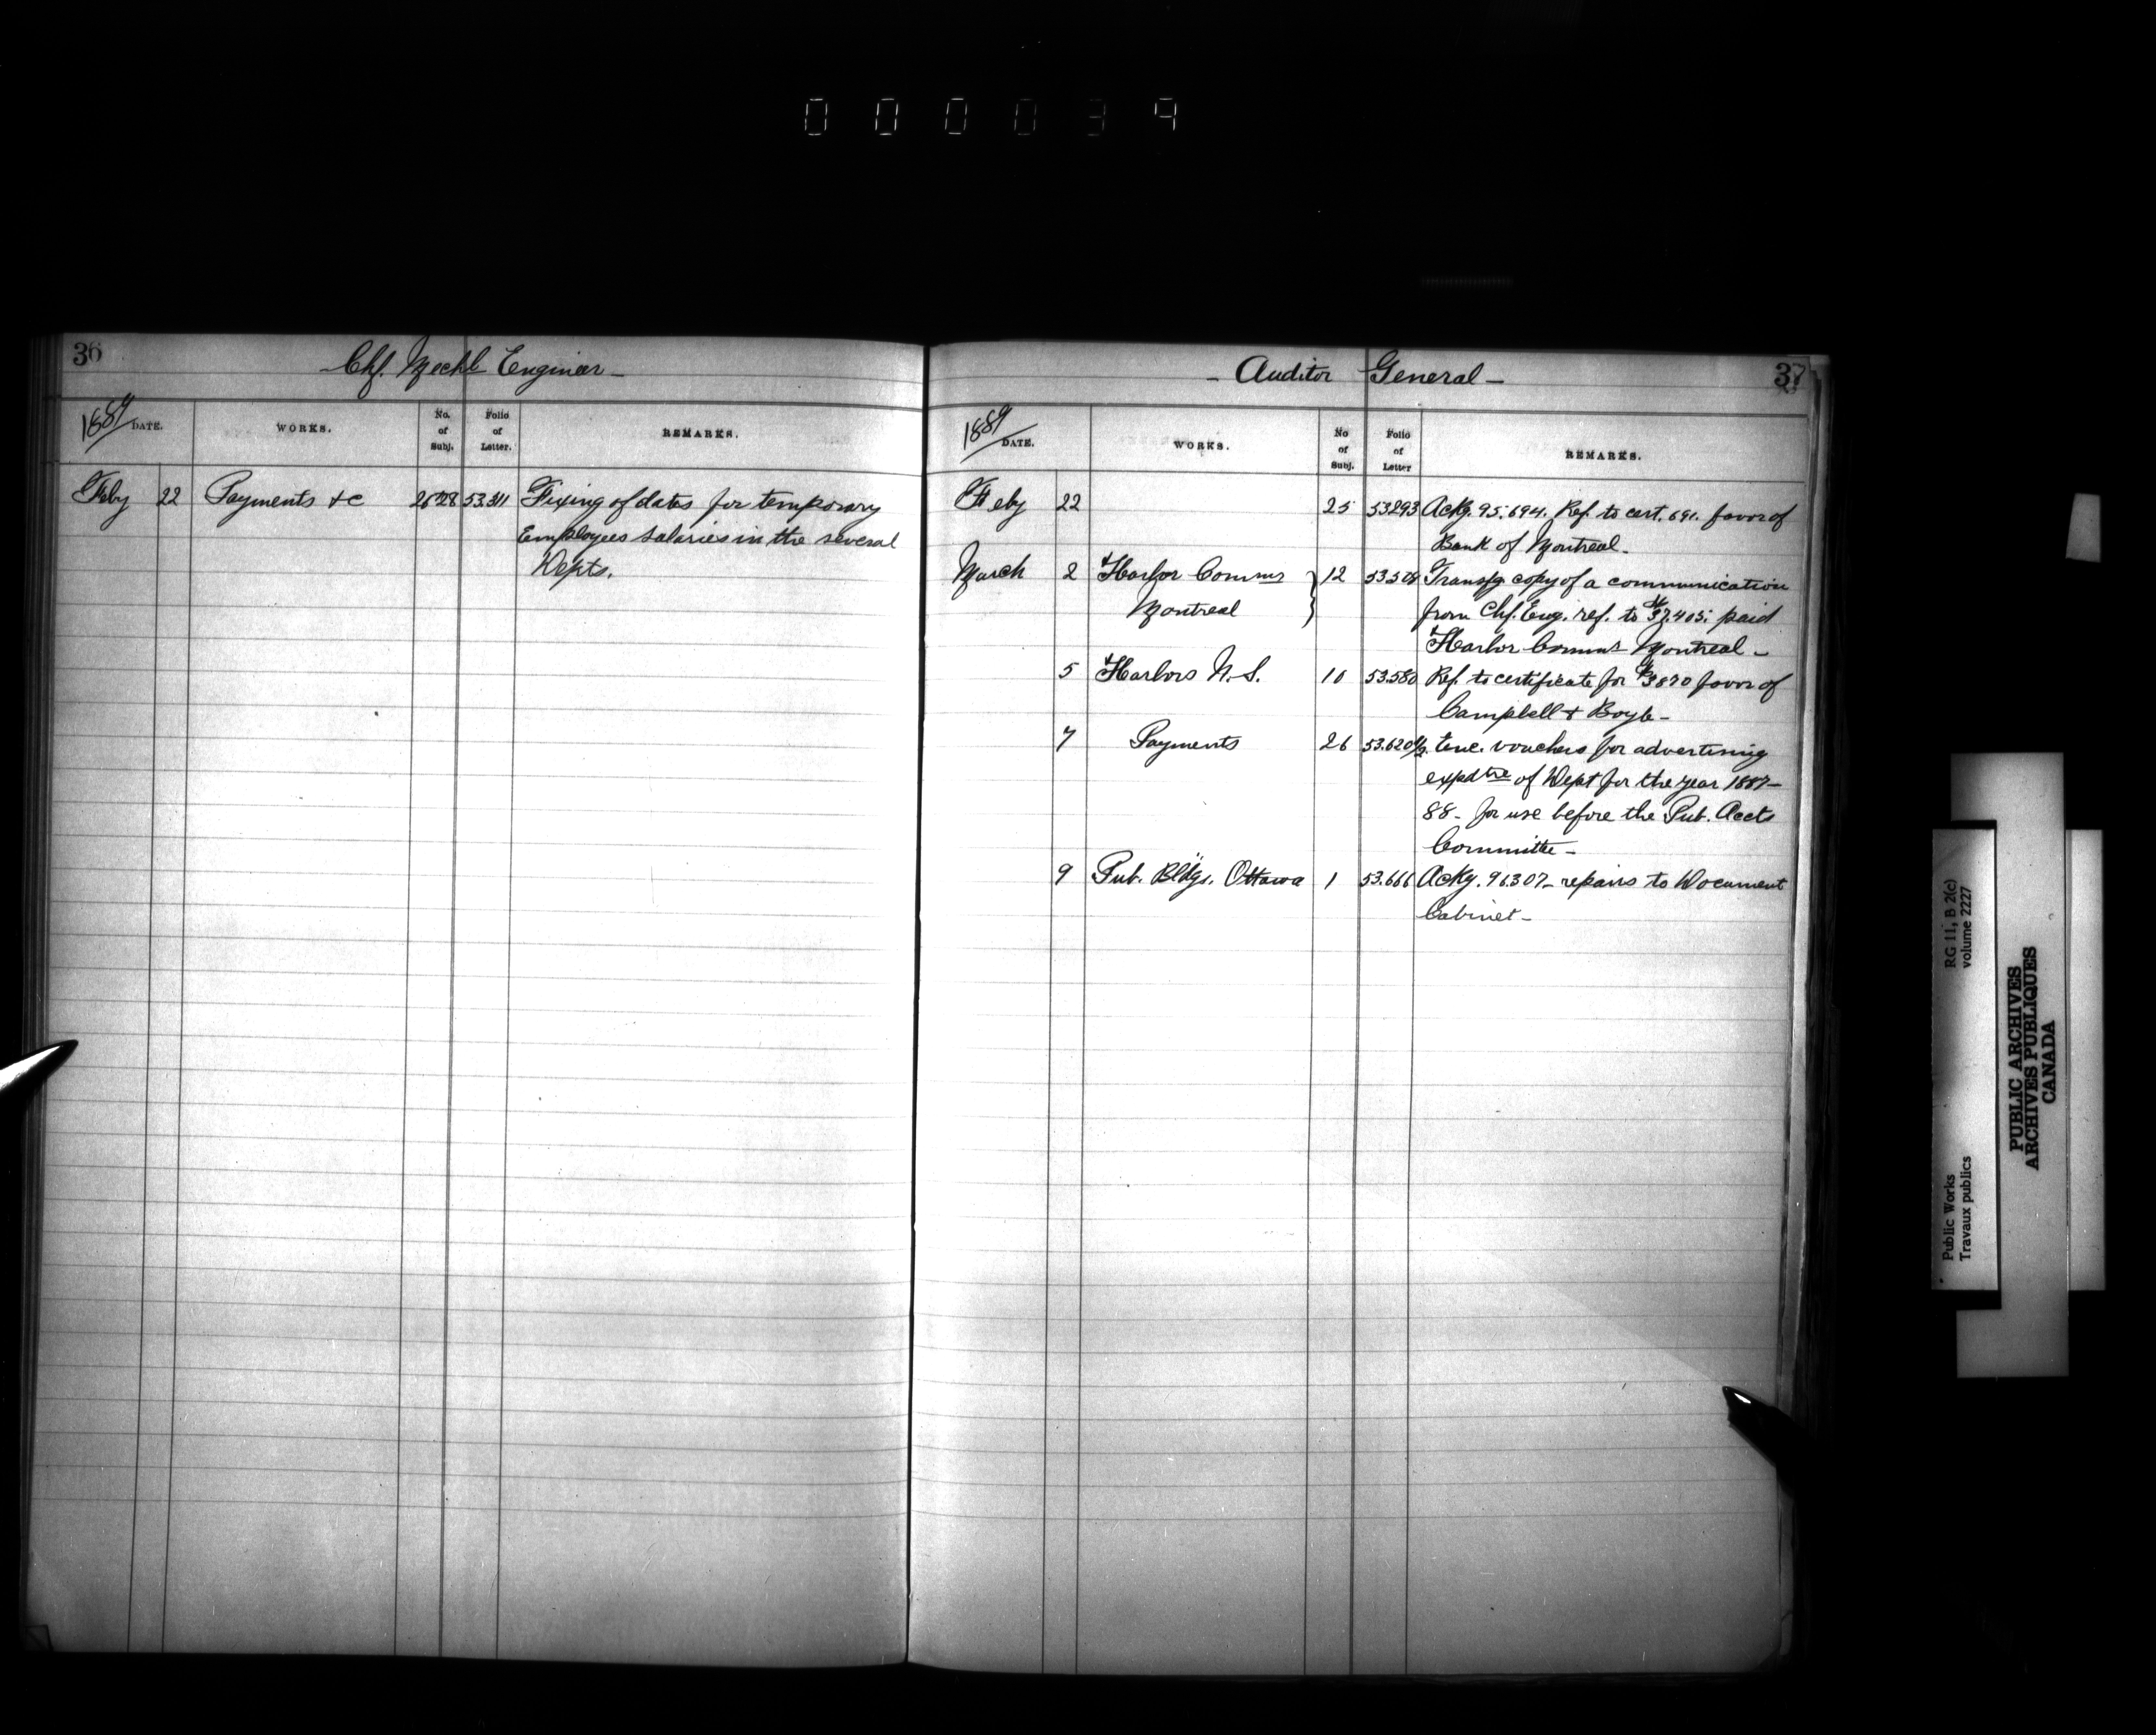 000039
36
- Chf. Mechl Engineer -
1889 DATE. WORKS. No. of Subj. Folio of Letter. REMARKS.
Feby 22 Payments &c 26 28 53.311 Fixing of dates for temporary
Employees salaries in the several
Depts.
- Auditor General - 37
1889 DATE. WORKS. No of Subj. Folio of Letter REMARKS.
Feby 22 25 53293 Ackg. 95.694. Ref. to cert. 691. favor of
Bank of Montreal -
March 2 Harbor Commrs 12 Transfg copy of a communication
Montreal from Chf. Eng. ref. to $37.405. paid
Harbor Comms Montreal -
5 Harbors N.S. 10 53.580 Ref. to certificate for $3870 favor of
Campbell & Boyle -
7 Payments 26 53.620½ Enc. vouchers for advertising
expdtre of Dept for the year 1887-
88 - for use before the Pub. Accts
Committe -
9 Pub. Bldgs. Ottawa 1 53.666 Ackg. 96307 - repairs to Document
Cabinet -
RG 11, B 2(c)
volume 2227
Public Works
Travaux publics
PUBLIC ARCHIVES
ARCHIVES PUBLIQUES
CANADA